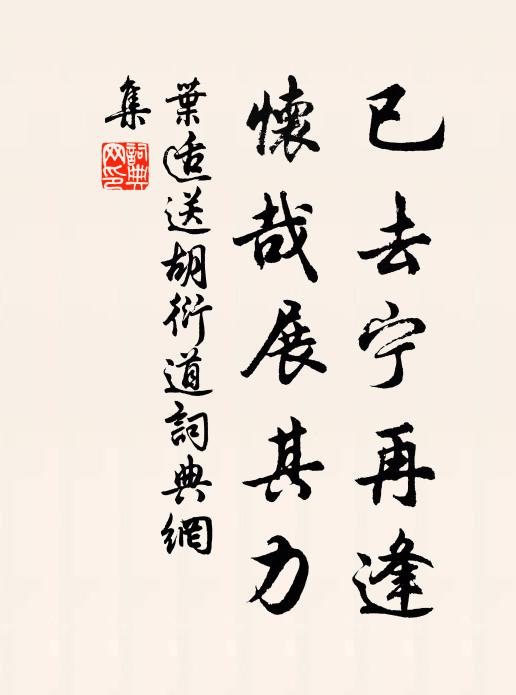 已去宁再逢
懷哉展其力
葉适送胡衍道詞典網
集
詞典
网印